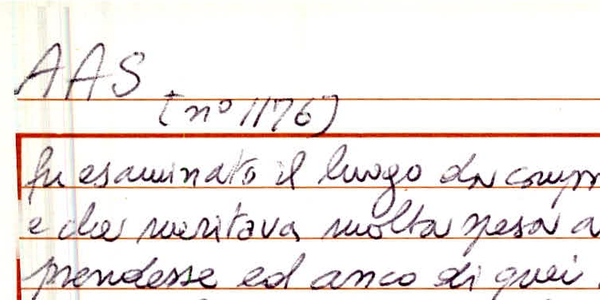 AAS
(n° 1176)
fu esaminato il luogo da
e che meritava molta spesa a
prendesse ed anco di quei